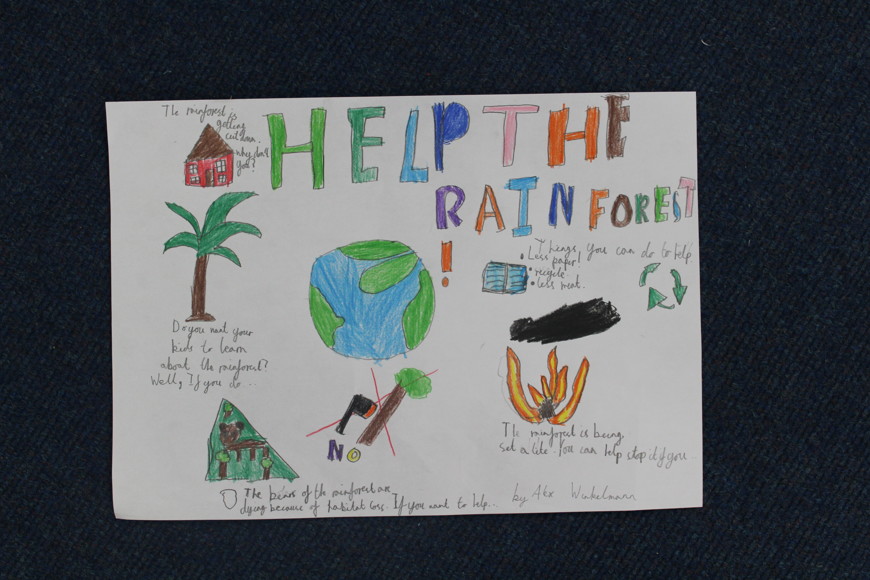 The rainforest is
getting
cut down.
why don't
you?
HELP THE
RAINFOREST
!
Things you can do to help
• Less paper!
• recycle
• less meat.
Do you want your
kids to learn
about the rainforest?
Well, If you do...
NO
The rainforest is being
set a lite. You can help stop it if you...
The bears of the rainforest are
dying because of habitat loss. If you want to help...
by Alex Winkelmann